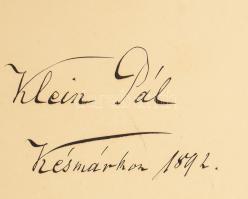 Klein Pál
Késmárkon 1892.